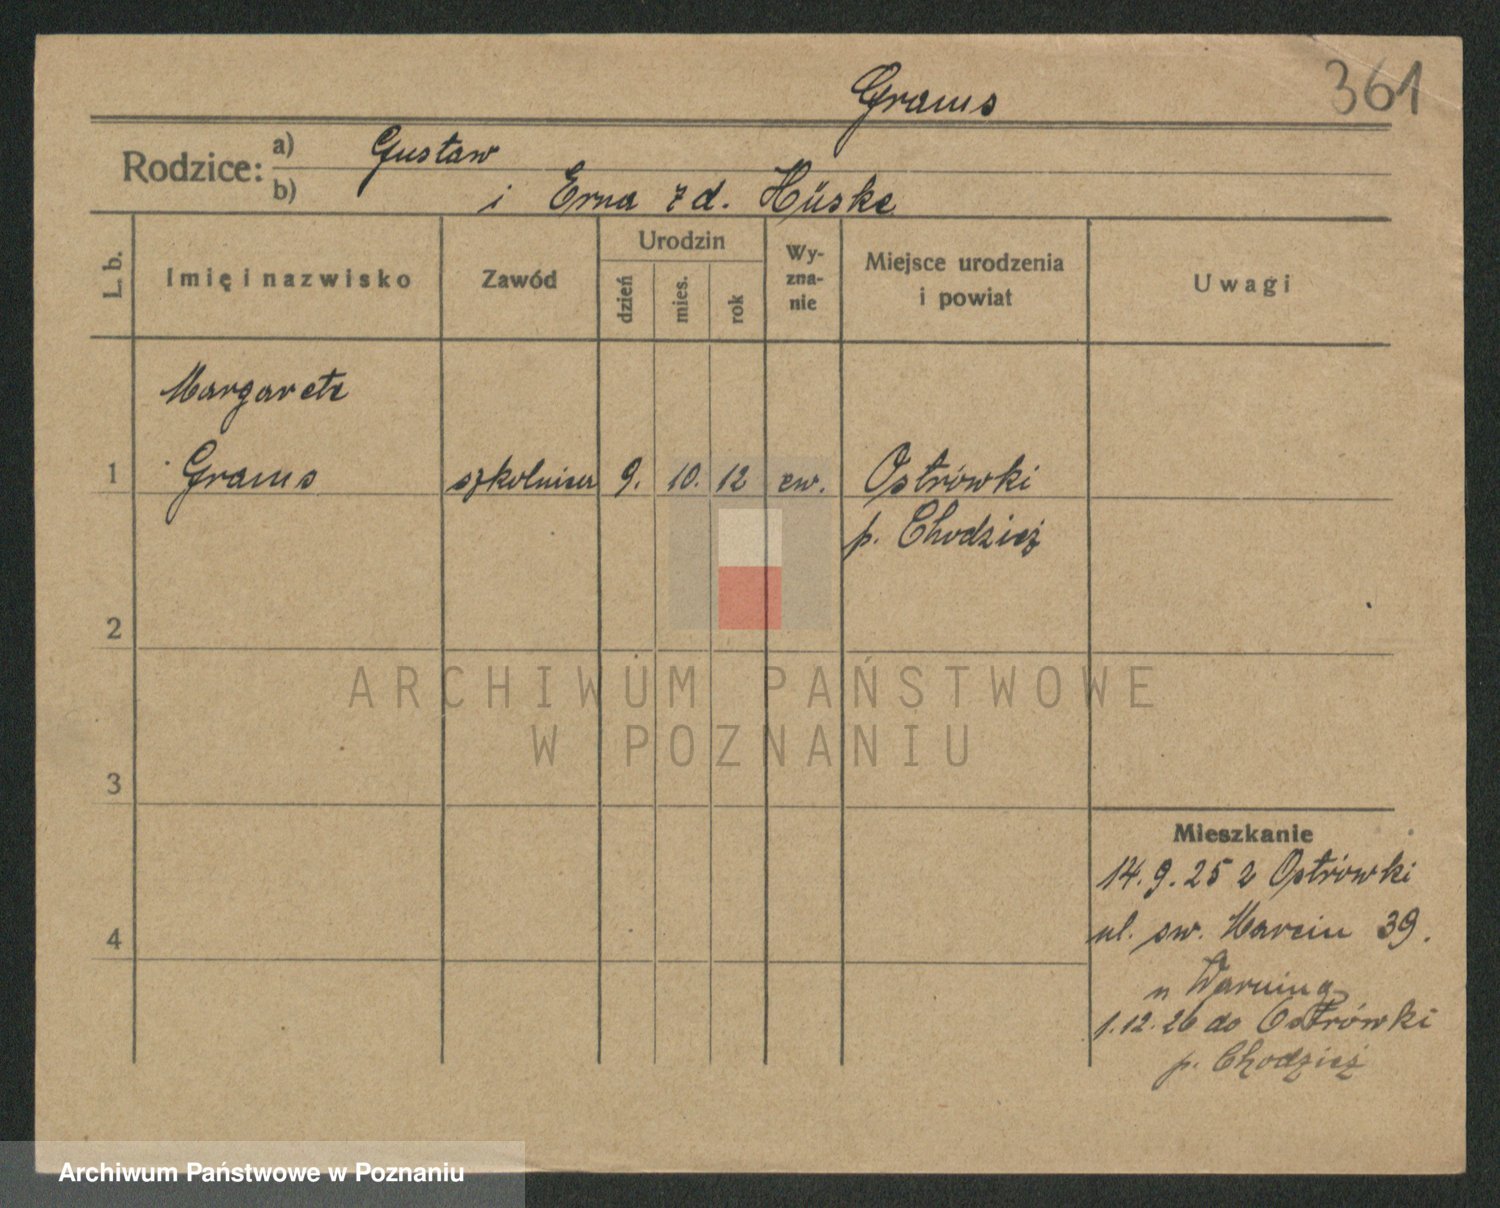 361
Grams
Rodzice:
a) Gustaw
b) i Erna z d. Hüske
L. b.
Imię i nazwisko
Zawód
Urodzin
dzień
mies.
rok
Wy-
zna-
nie
Miejsce urodzenia
i powiat
Uwagi
Margarete
1 Grams szkolnica 9. 10. 12 ew. Ostrówki
p. Chodzież
2
3
4
Mieszkanie
14.9.25 z Ostrówki
ul. św. Marcin 39.
u Warning
1.12.26 do Ostrówki
p. Chodzież
ARCHIWUM PAŃSTWOWE
W POZNANIU
Archiwum Państwowe w Poznaniu